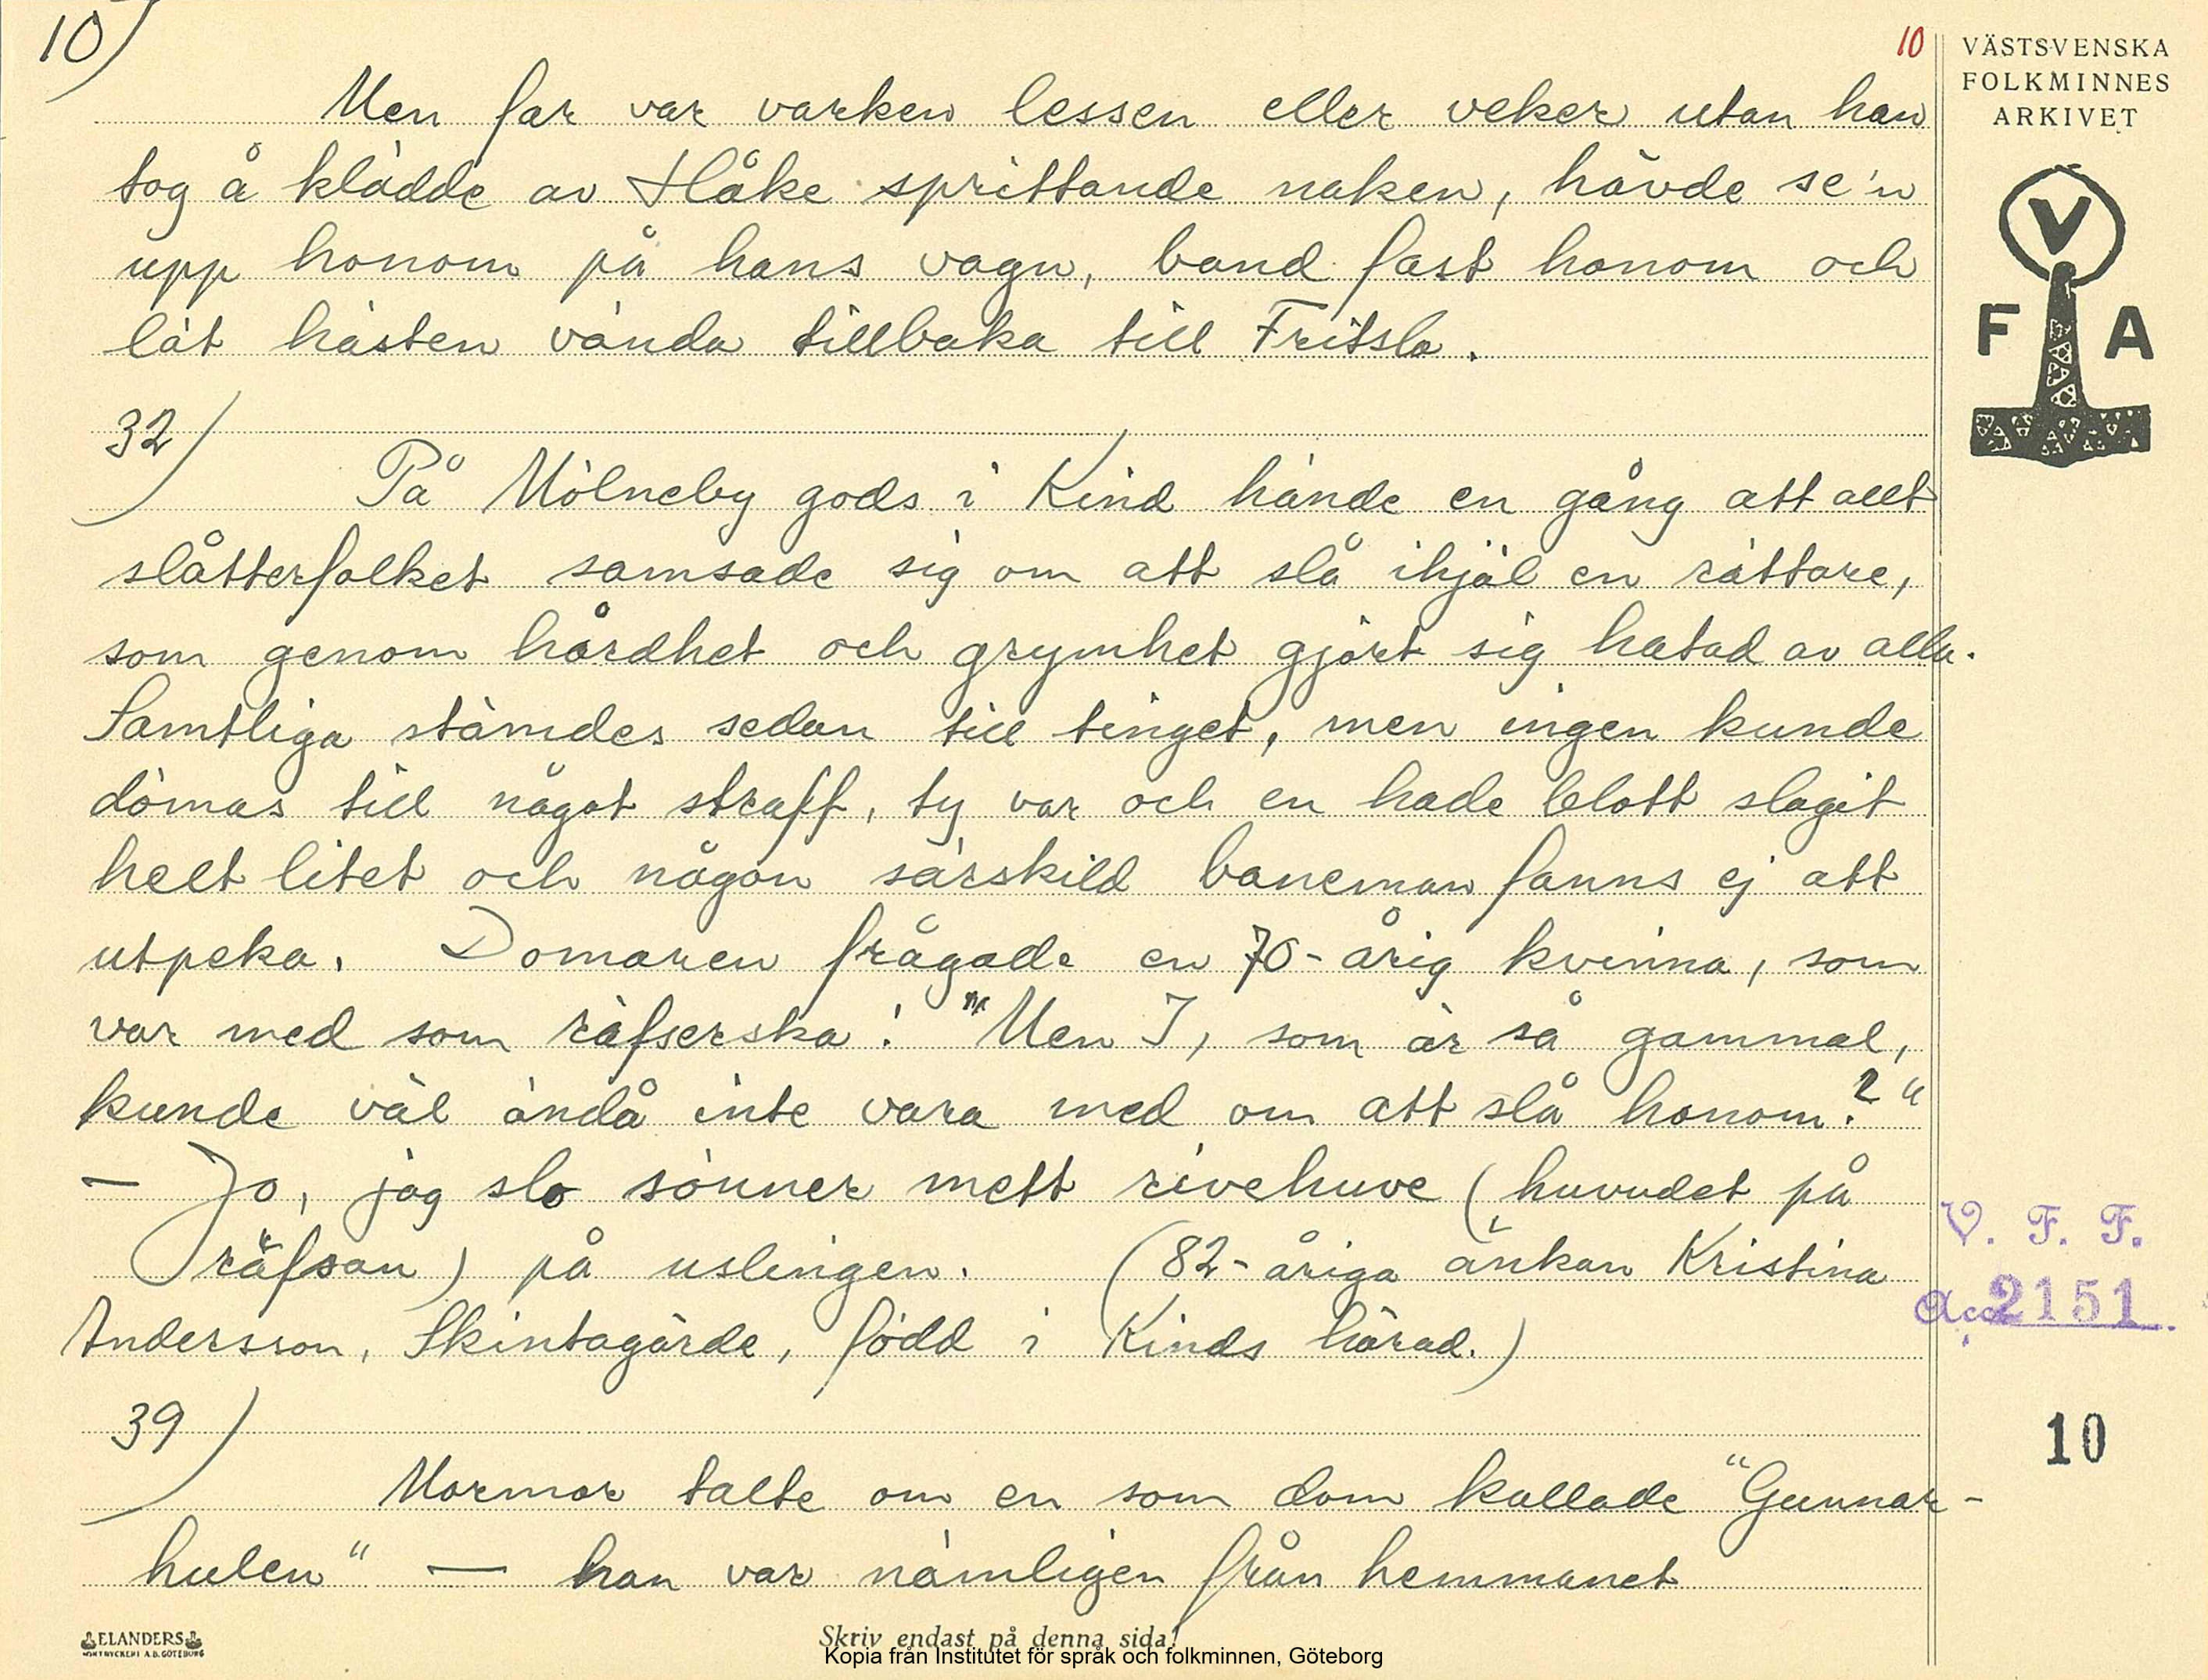 10)
10
VÄSTSVENSKA
FOLKMINNES
ARKIVET
V
F A
Men far var varken lessen eller veker utan han
tog å klädde av Håke sprittande naken, hävde se'n
upp honom på hans vagn, band fast honom och
lät hästen vända tillbaka till Fritsla.
32)
På Mölneby gods i Kind hände en gång att allt
slåtterfolket samsade sig om att slå ihjäl en rättare,
som genom hårdhet och grymhet gjört sig hatad av alla.
Samtliga stämdes sedan till tinget, men ingen kunde
dömas till något straff, ty var och en hade blott slagit
helt litet och någon särskild baneman fanns ej att
utpeka. Domaren frågade en 70-årig kvinna, som
var med som räfserska: "Men I, som är så gammal,
kunde väl ändå inte vara med om att slå honom?"
— Jo, jag slo sönner mett rivehuve (huvudet på
räfsan) på uslingen. (82-åriga änkan Kristina
Andersson, Skintagärde, född i Kinds härad.)
V. F. F.
Acc. 2151.
39)
10
Mormor talte om en som dom kallade "Gunnar-
hulen" — han var nämligen från hemmanet
ELANDERS
BOKTRYCKERI A.B. GÖTEBORG
Skriv endast på denna sida!
Kopia från Institutet för språk och folkminnen, Göteborg